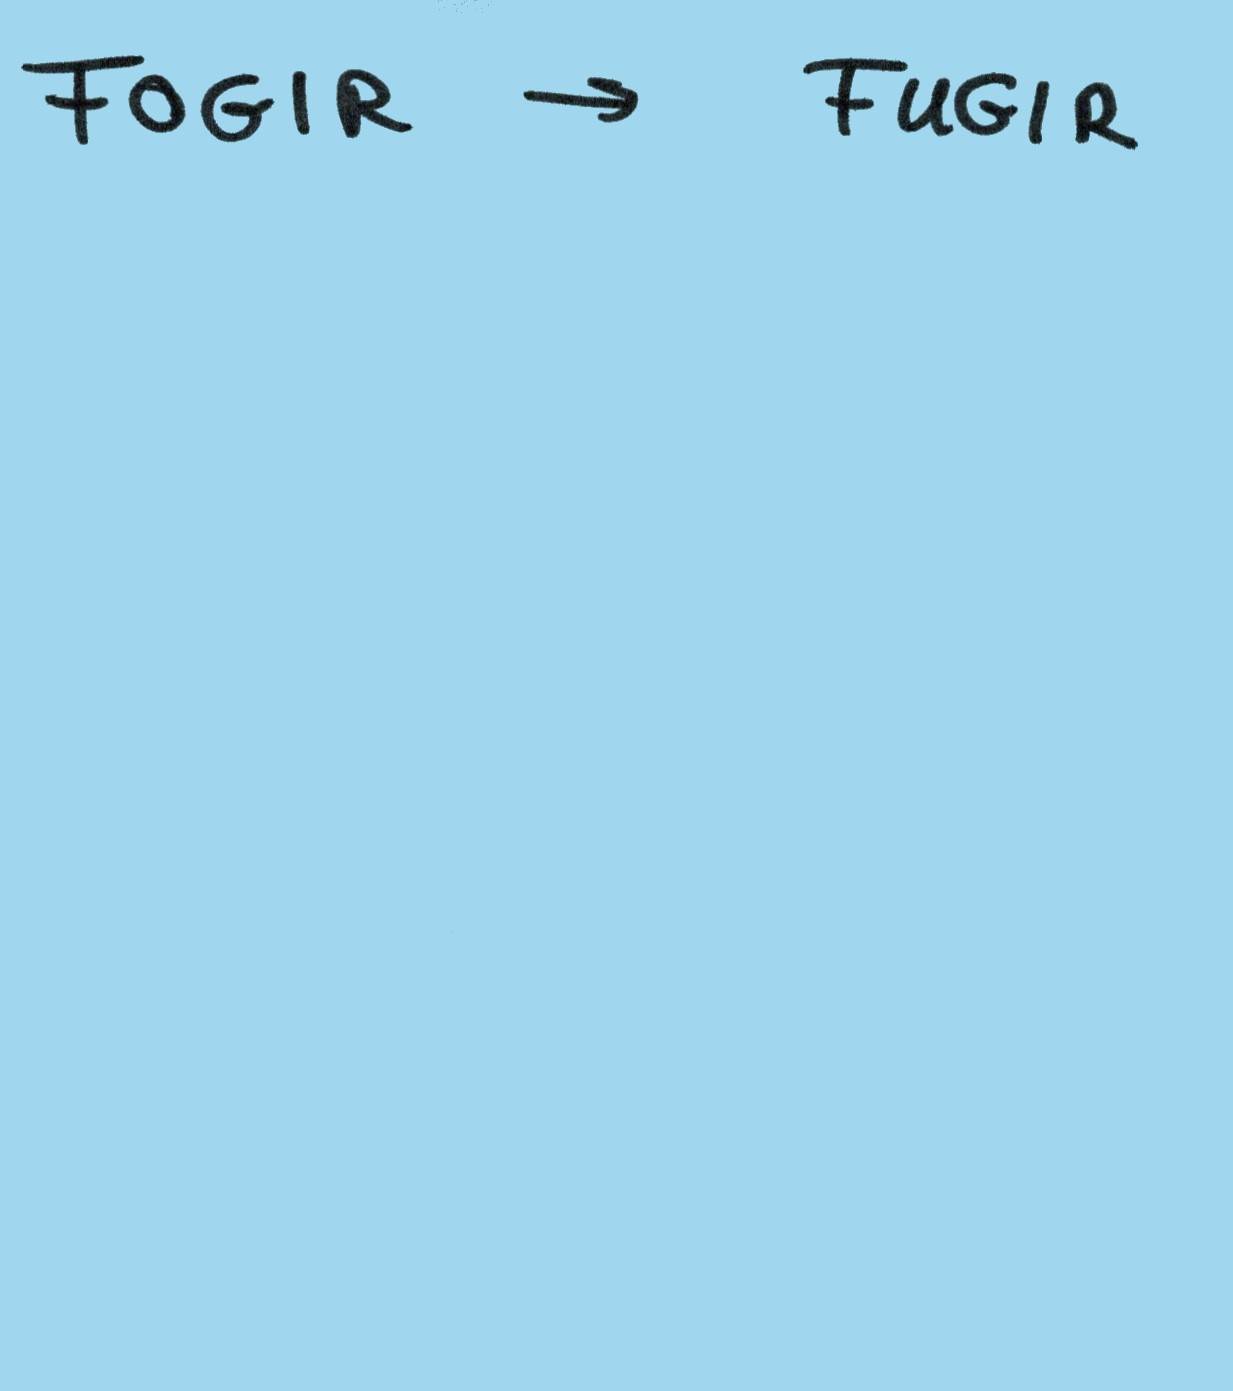 FOGIR → FUGIR